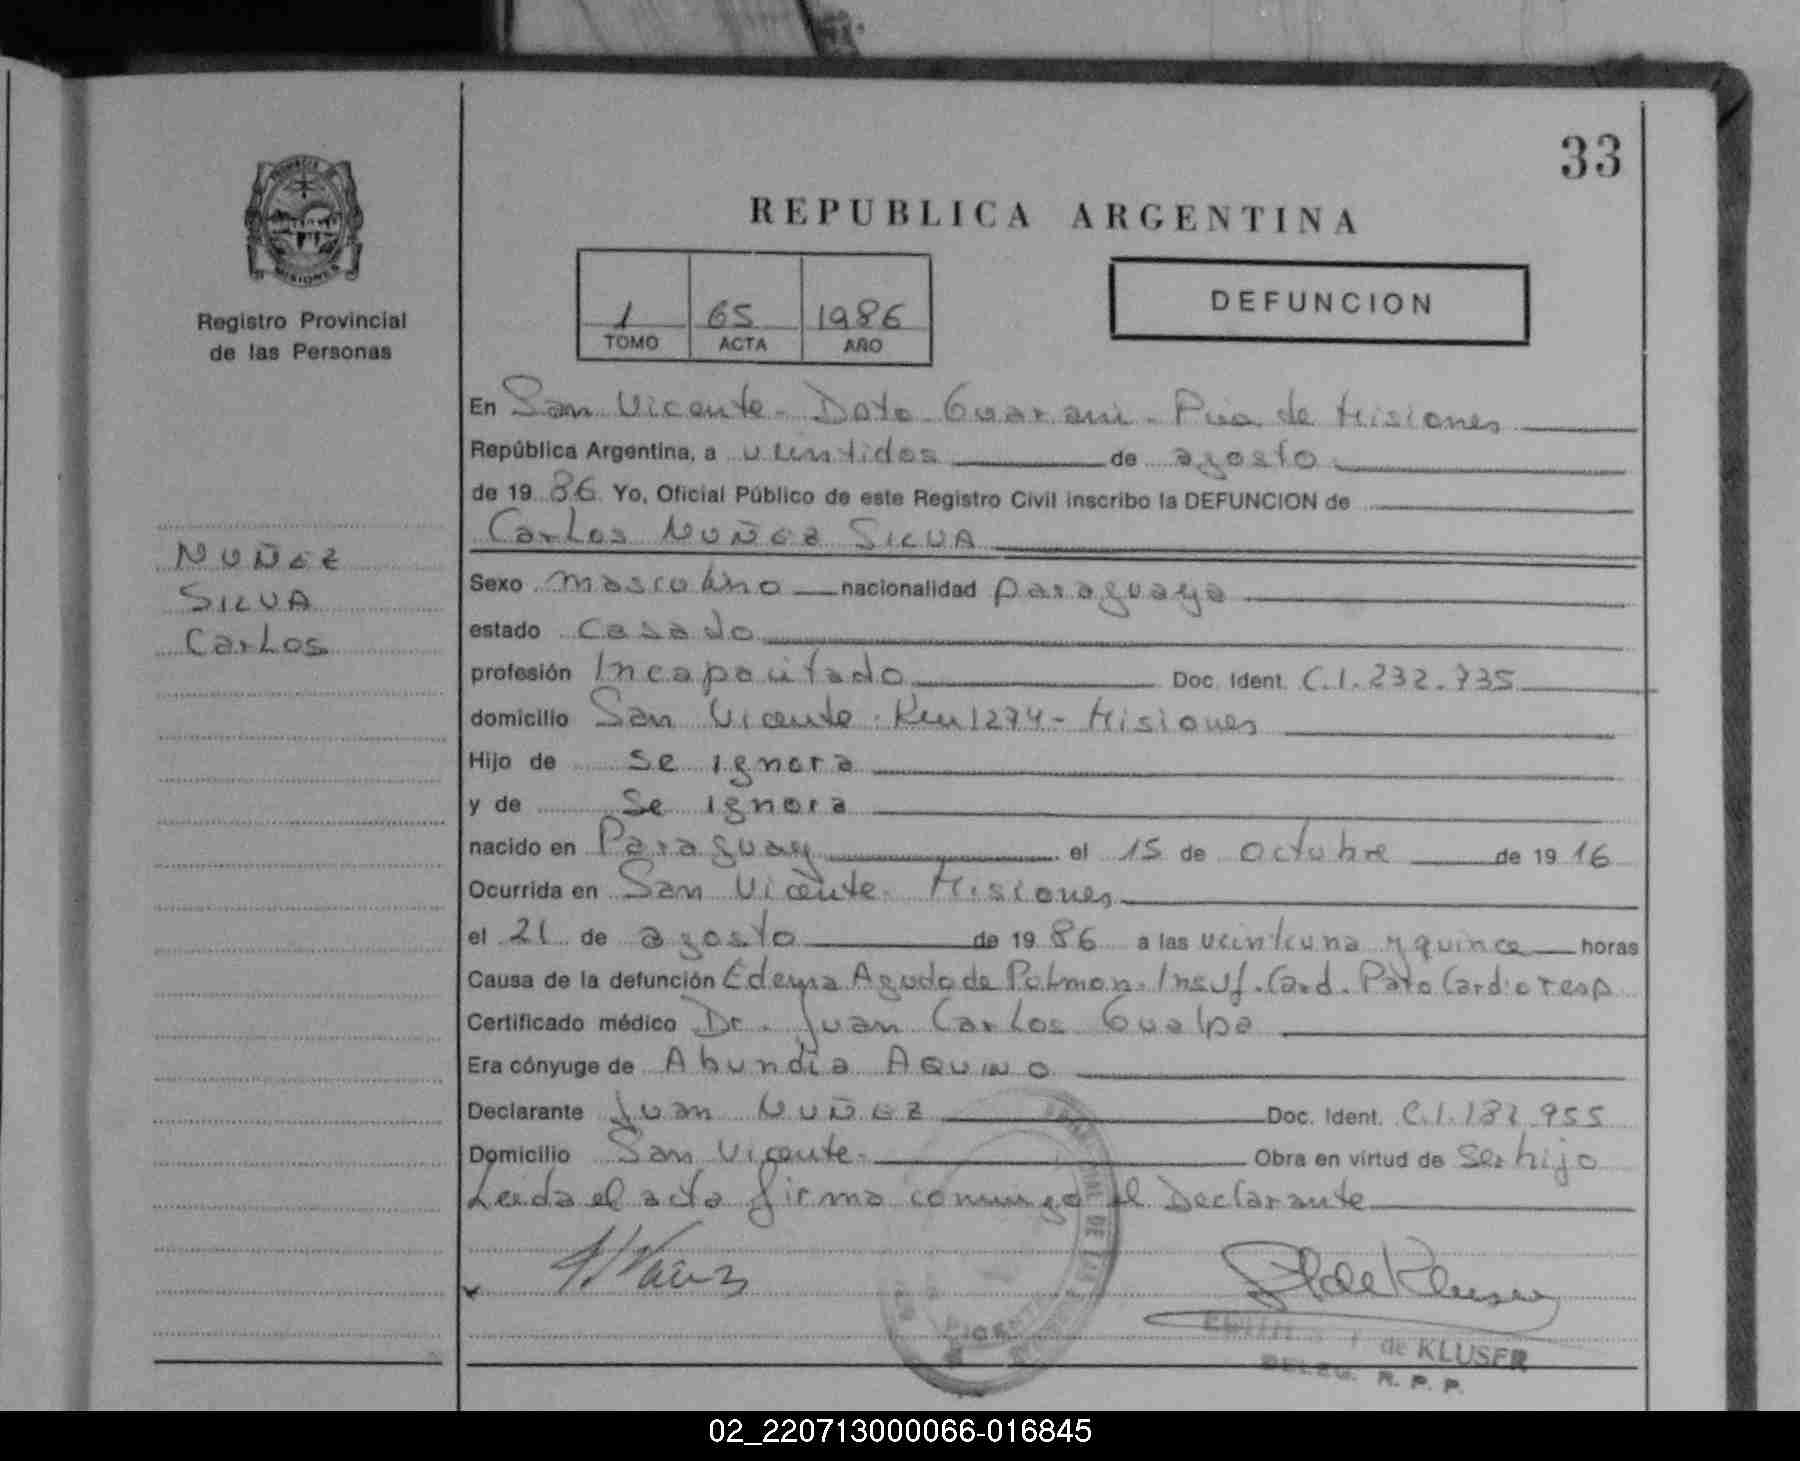 33
REPUBLICA ARGENTINA
PROVINCIA DE
MISIONES
Registro Provincial
de las Personas
1 65 1986
TOMO ACTA AÑO
DEFUNCION
NUÑEZ
SILVA
CarLos
En San Vicente - Dpto Guarani - Pcia de Misiones
República Argentina, a veintidos de agosto
de 19 86 Yo, Oficial Público de este Registro Civil inscribo la DEFUNCION de
CarLos NUÑEZ SILVA
Sexo masculino nacionalidad paraguaya
estado casado
profesión Incapacitado Doc. Ident. C.I. 232.735
domicilio San Vicente - Km 1274 - Misiones
Hijo de se ignora
y de se ignora
nacido en Paraguay el 15 de octubre de 19 16
Ocurrida en San Vicente - Misiones
el 21 de agosto de 19 86 a las veintiuna y quince horas
Causa de la defunción Edema Agudo de Pulmon. Insuf. Card. Paro Cardioresp
Certificado médico Dr. Juan CarLos Gualpa
Era cónyuge de Abundia AQUINO
Declarante Juan NUÑEZ Doc. Ident. C.I. 182.955
Domicilio San Vicente - Obra en virtud de ser hijo
Leida el acta firma conmigo el Declarante
de KLUSER
DELEG. R. P. P.
02_220713000066-016845